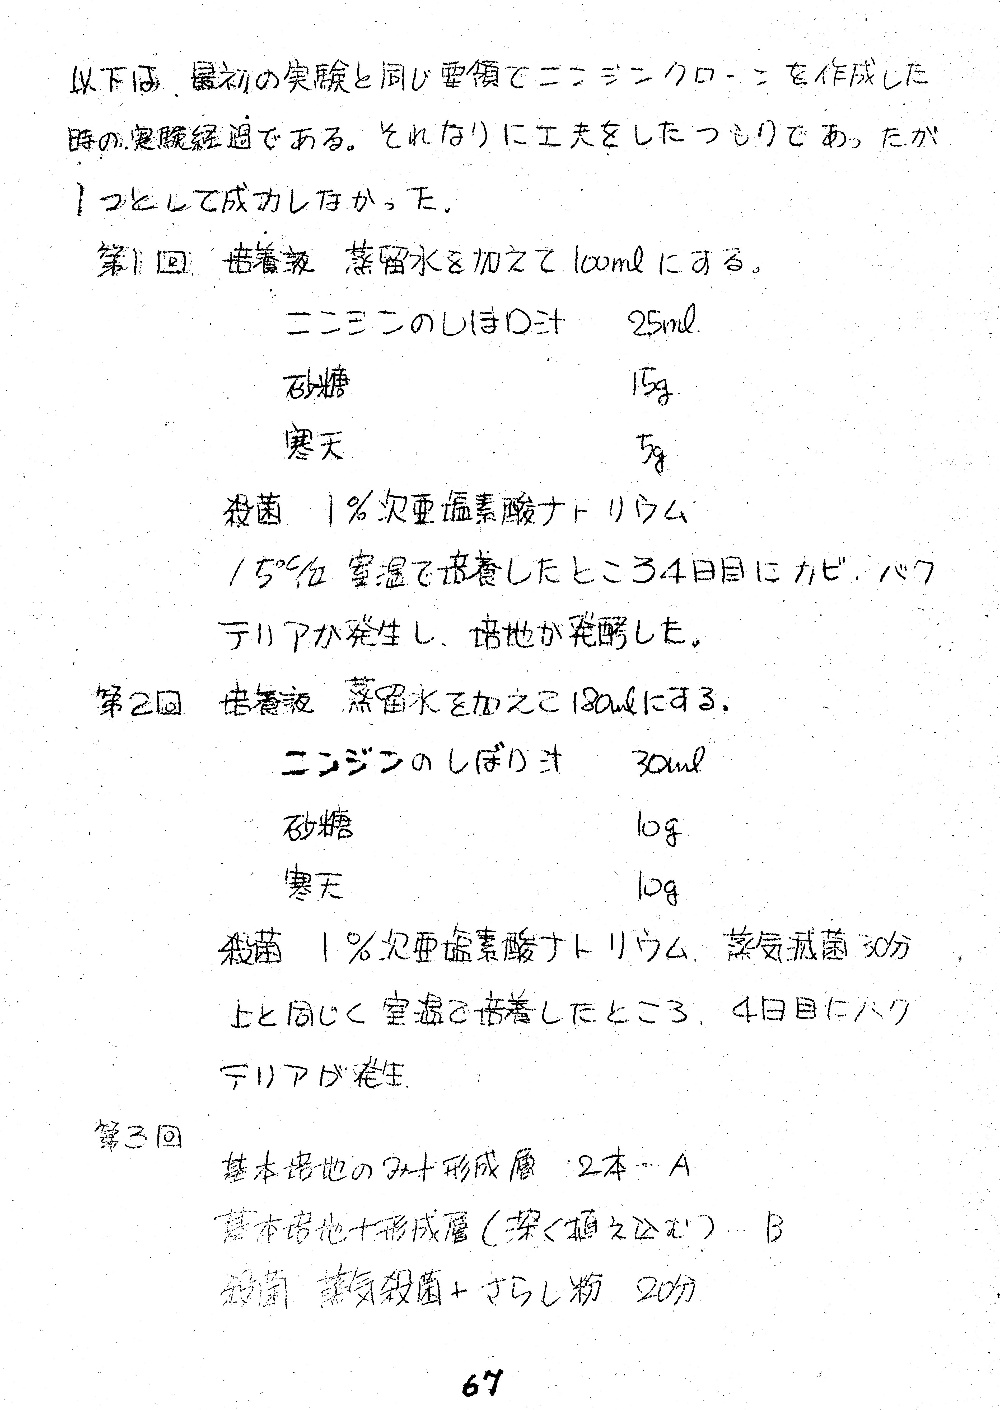 以下は、最初の実験と同じ要領でニンジンクローンを作成した
時の実験経過である。それなりに工夫をしたつもりであったが
1つとして成力しなかった。
第1回 培養液 蒸留水を加えて100mlにする。
ニンジンのしぼり汁 25ml
砂糖 15g
寒天 5g
殺菌 1%次亜塩素酸ナトリウム
15℃位 室温で培養したところ4日目にカビ、バク
テリアが発生し、培地が発酵した。
第2回 培養液 蒸留水を加えて180mlにする。
ニンジンのしぼり汁 30ml
砂糖 10g
寒天 10g
殺菌 1%次亜塩素酸ナトリウム、蒸気滅菌30分
上と同じく室温で培養したところ、4日目にバク
テリアが発生
第3回
基本培地のみ+形成層 2本…A
基本培地+形成層(深く植え込む)…B
殺菌 蒸気殺菌+さらし粉 20分
67